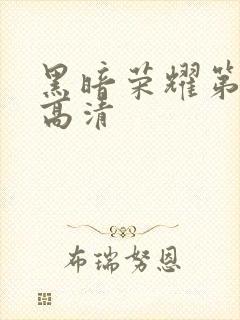 黑暗荣耀第
高清
布瑞努恩